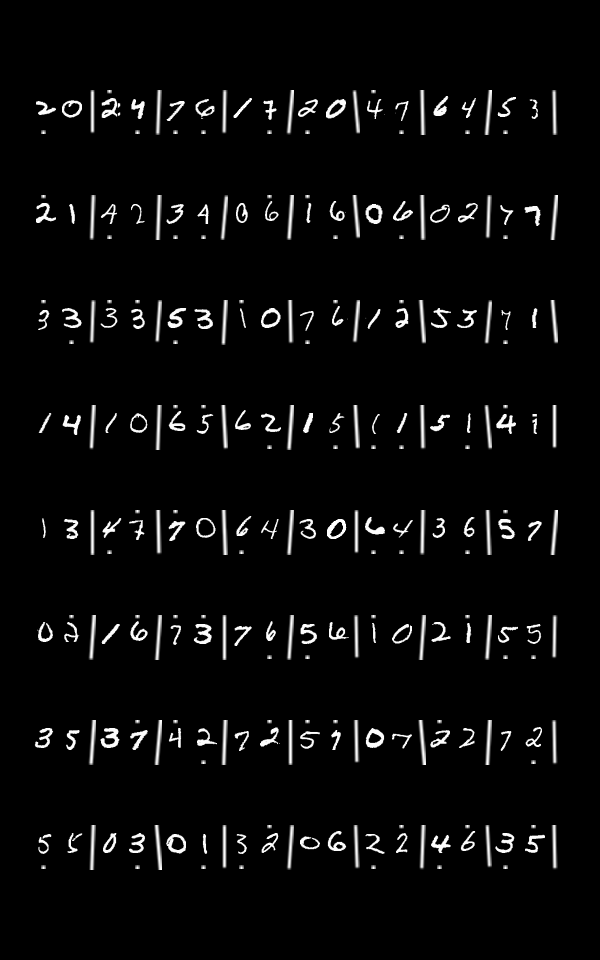 2 0 | 2 4 | 7 6 | 1 7 | 2 0 | 4 7 | 6 4 | 5 3 |
2 1 | 4 2 | 3 4 | 0 6 | 1 6 | 0 6 | 0 2 | 7 7 |
3 3 | 3 3 | 5 3 | 1 0 | 7 6 | 1 2 | 5 3 | 7 1 |
1 4 | 1 0 | 6 5 | 6 2 | 1 5 | 1 1 | 5 1 | 4 1 |
1 3 | 4 7 | 7 0 | 6 4 | 3 0 | 6 4 | 3 6 | 5 7 |
0 2 | 1 6 | 7 3 | 7 6 | 5 6 | 1 0 | 2 1 | 5 5 |
3 5 | 3 7 | 4 2 | 7 2 | 5 7 | 0 7 | 2 2 | 7 2 |
5 5 | 0 3 | 0 1 | 3 2 | 0 6 | 2 2 | 4 6 | 3 5 |